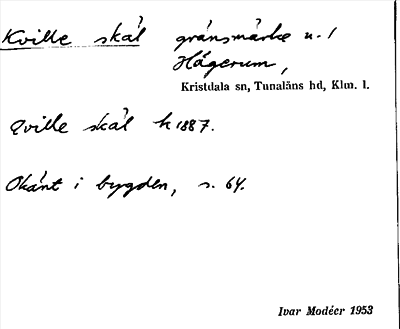 Kville skäl gränsmärke u. 1
Hägerum,
Kristdala sn, Tunaläns hd, Klm. l.
Qville skäl k 1887.
Okänt i bygden, s. 64.
Ivar Modéer 1953